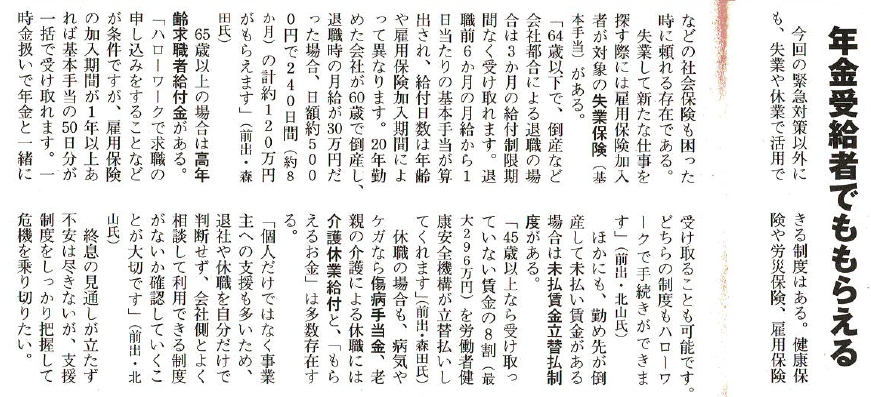 年金受給者でももらえる
今回の緊急対策以外に
も、失業や休業で活用で
きる制度はある。健康保
険や労災保険、雇用保険
などの社会保険も困った
時に頼れる存在である。
失業して新たな仕事を
探す際には雇用保険加入
者が対象の失業保険（基
本手当）がある。
「64歳以下で、倒産など
会社都合による退職の場
合は３か月の給付制限期
間なく受け取れます。退
職前６か月の月給から１
日当たりの基本手当が算
出され、給付日数は年齢
や雇用保険加入期間によ
って異なります。20年勤
めた会社が60歳で倒産し、
退職時の月給が30万円だ
った場合、日額約５００
０円で２４０日間（約８
か月）の計約１２０万円
がもらえます」（前出・森
田氏）
65歳以上の場合は高年
齢求職者給付金がある。
「ハローワークで求職の
申し込みをすることなど
が条件ですが、雇用保険
の加入期間が１年以上あ
れば基本手当の50日分が
一括で受け取れます。一
時金扱いで年金と一緒に
受け取ることも可能です。
どちらの制度もハローワ
ークで手続きができま
す」（前出・北山氏）
ほかにも、勤め先が倒
産して未払い賃金がある
場合は未払賃金立替払制
度がある。
「45歳以上なら受け取っ
ていない賃金の８割（最
大２９６万円）を労働者健
康安全機構が立替払いし
てくれます」（前出・森田氏）
休職の場合も、病気や
ケガなら傷病手当金、老
親の介護による休職には
介護休業給付と、「もら
えるお金」は多数存在す
る。
「個人だけではなく事業
主への支援も多いため、
退社や休職を自分だけで
判断せず、会社側とよく
相談して利用できる制度
がないか確認していくこ
とが大切です」（前出・北
山氏）
終息の見通しが立たず
不安は尽きないが、支援
制度をしっかり把握して
危機を乗り切りたい。